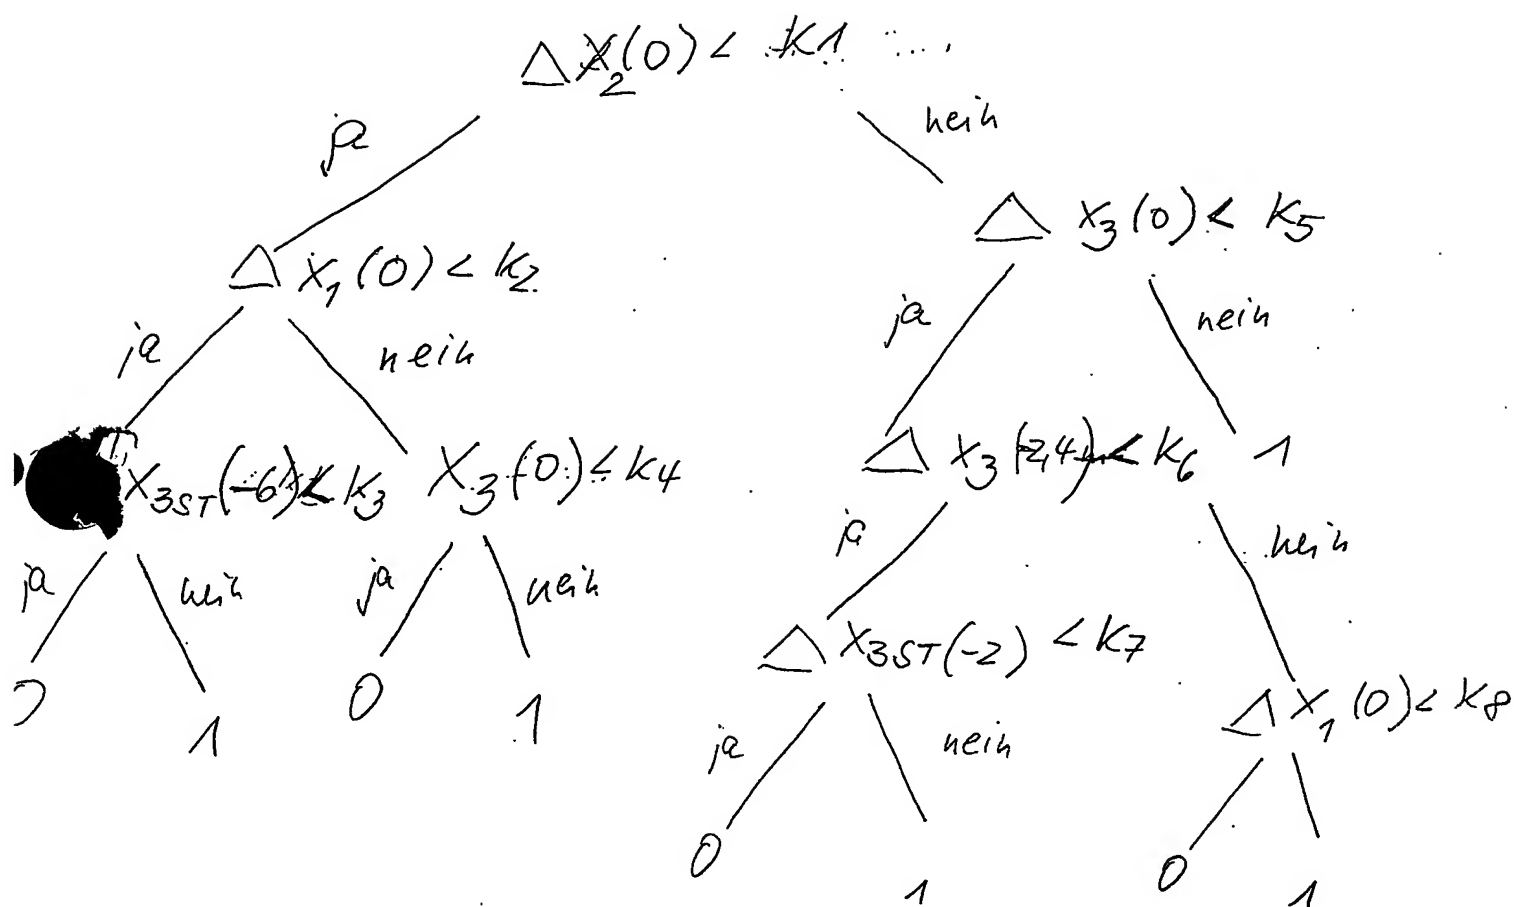 Δ X₂(0) < K1
ja nein
Δ X₃(0) < K5
Δ X₁(0) < K2
ja nein ja nein
X₃ST(-6) < K3 X₃(0) < K4 Δ X₃(-2,4) < K6 1
ja nein ja nein ja nein
0 1 0 1 Δ X₃ST(-2) < K7
Δ X₁(0) < K8
ja nein
0 1 0 1